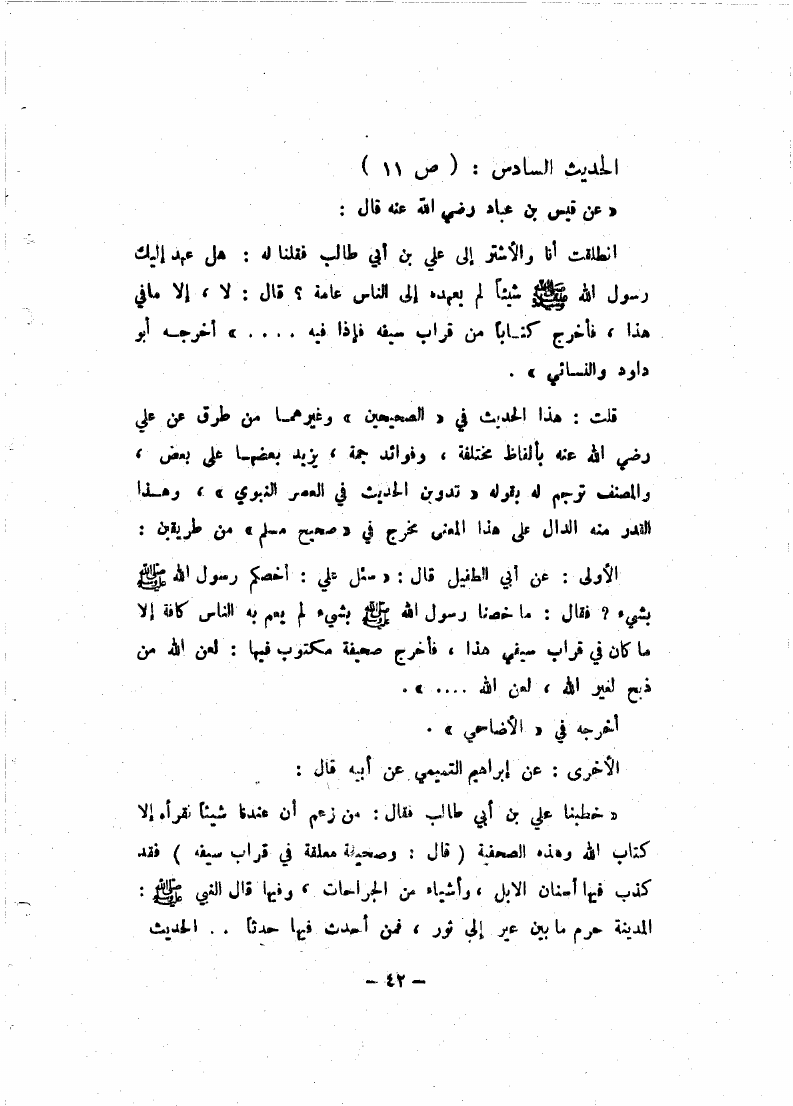 الحديث السادس : ( ص ١١ )
« عن قيس بن عباد رضي الله عنه قال :
انطلقت أنا والأشتر إلى علي بن أبي طالب فقلنا له : هل عهد إليك
رسول الله ﷺ شيئاً لم يعهده إلى الناس عامة ؟ قال : لا ، إلا مافي
هذا ، فأخرج كتـاباً من قراب سيفه فإذا فيه .... » أخرجـه أبو
داود والنسائي » .
قلت : هذا الحديث في « الصحيحين » وغيرهمـا من طرق عن علي
رضي الله عنه بألفاظ مختلفة ، وفوائد جمة ، يزيد بعضهـا على بعض ،
والمصنف ترجم له بقوله « تدوين الحديث في العصر النبوي » ، وهـذا
القدر منه الدال على هذا المعنى مخرج في « صحيح مسلم » من طريقين :
الأولى : عن أبي الطفيل قال : « سئل علي : أخصكم رسول الله ﷺ
بشيء ؟ فقال : ما خصنا رسول الله ﷺ بشيء لم يعم به الناس كافة إلا
ما كان في قراب سيفي هذا ، فأخرج صحيفة مكتوب فيها : لعن الله من
ذبح لغير الله ، لعن الله .... » .
أخرجه في « الأضاحي » .
الأخرى : عن إبراهيم التيمي عن أبيه قال :
« خطبنا علي بن أبي طالب فقال : من زعم أن عندنا شيئاً نقرأه إلا
كتاب الله وهذه الصحفية ( قال : وصحيفة معلقة في قراب سيفه ) فقد
كذب فيها أسنان الابل ، وأشياء من الجراحات ، وفيها قال النبي ﷺ :
المدينة حرم ما بين عير إلى ثور ، فمن أحدث فيها حدثاً .. الحديث
– ٤٢ –